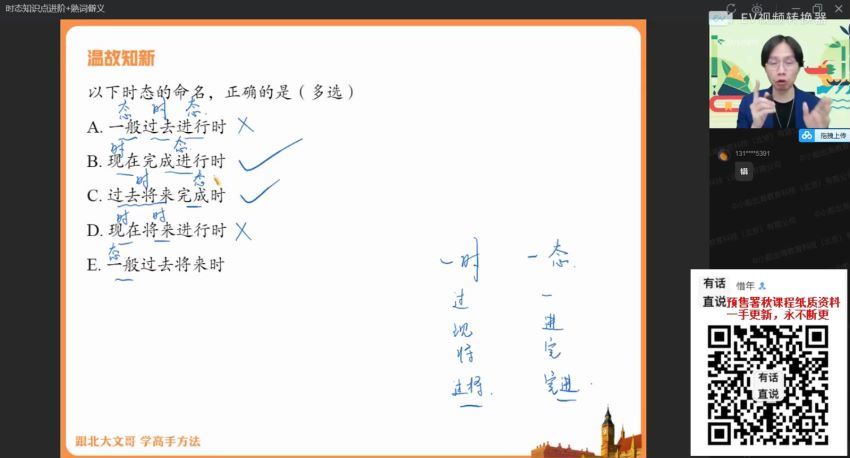 时态知识点进阶+熟词僻义
EV视频转换器
温故知新
以下时态的命名，正确的是（多选）
态 时 态
A. 一般过去进行时 ×
时 态
B. 现在完成进行时 ✓
时 态
C. 过去将来完成时 ✓
时 时
D. 现在将来进行时 ×
态
E. 一般过去将来时
一时 一态
过 一
现 进
将 完
过将 完进
跟北大文哥 学高手方法
拖拽上传
131****5391
有话
直说
惜年
预售署秋课程纸质资料
一手更新，永不断更
有话
直说